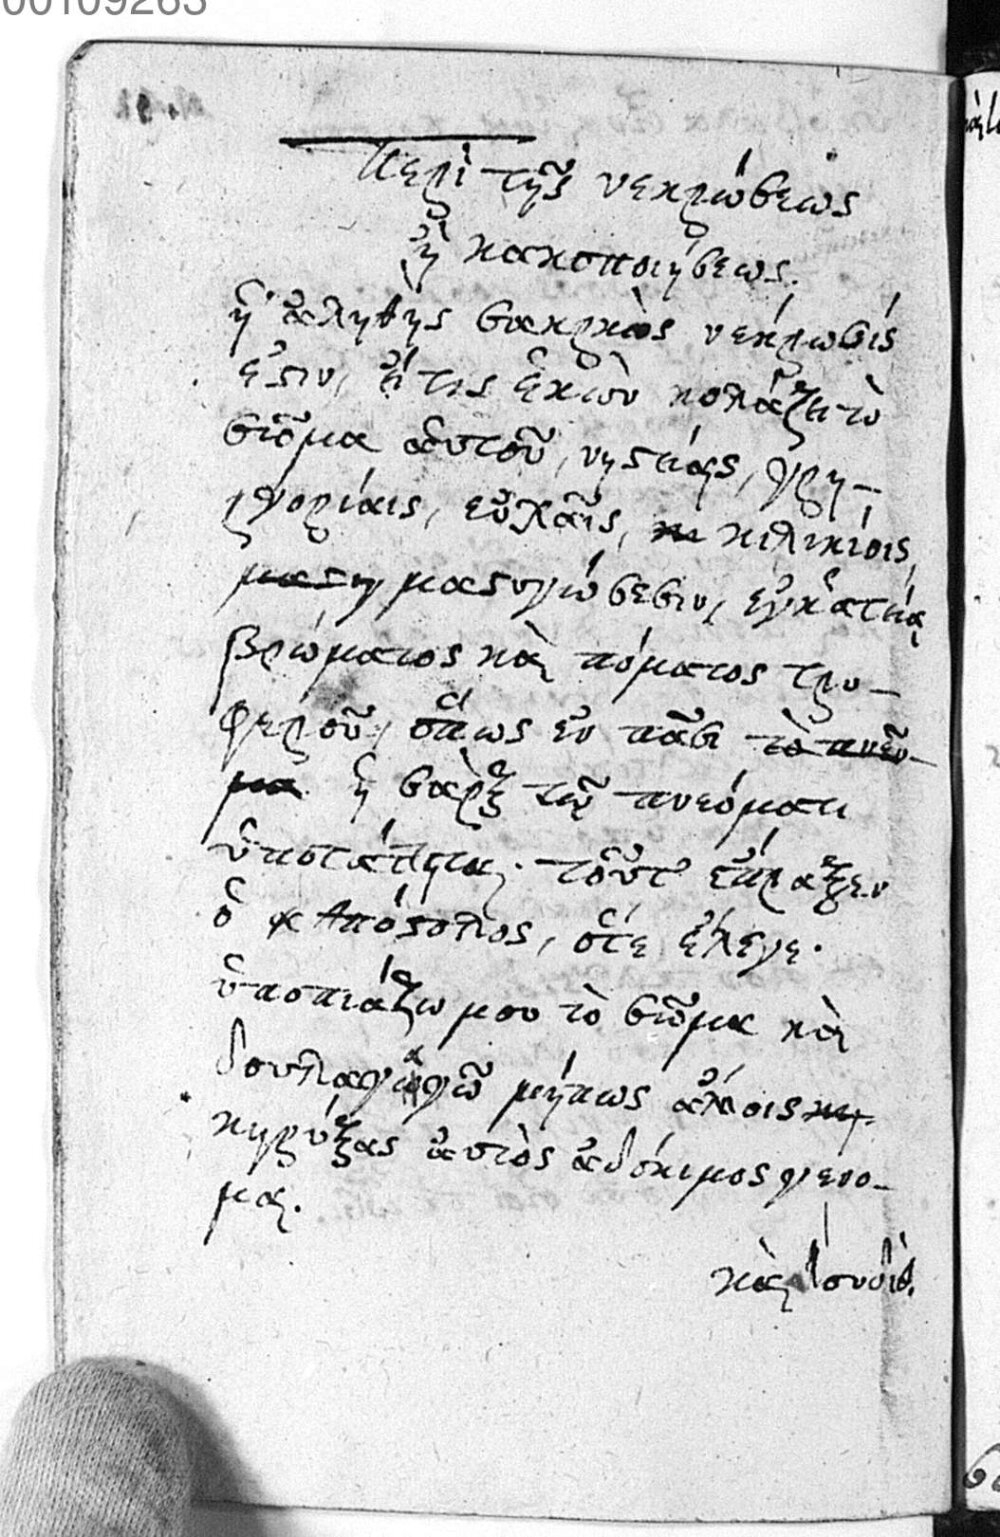 00109263
Περὶ τῆς νεκρώσεως
ἢ κακοποιήσεως.
ἡ ἀληθὴς σαρκὸς νέκρωσίς
ἐστιν, εἴ τις ἑκὼν κολάζει τὸ
σῶμα ἀυτοῦ, νηστείαις, γρη-
γορίαις, εὐχαῖς, κιλικίοις,
μαστιγώσεσιν, ἐγκρατείᾳ
βρώματος καὶ πόματος τρυ-
φεροῦ, ὅπως ἐν πᾶσι τὸ πνεῦ-
μα ἡ σὰρξ τῷ πνεύματι
ὑποτάττηται. τοῦτ' ἔπραξεν
ὁ Ἀπόστολος, ὅτε ἔλεγε.
ὑποπιάζω μου τὸ σῶμα καὶ
δουλαγωγῶ μήπως ἄλλοις
κηρύξας ἀυτὸς ἀδόκιμος γενο-
μαι.
καὶ Ἰουδίθ.